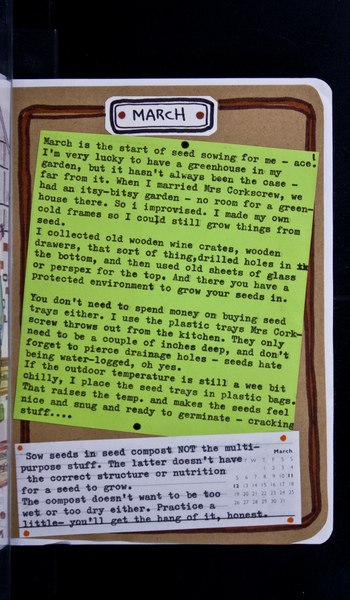 MARCH
March is the start of seed sowing for me - ace!
I'm very lucky to have a greenhouse in my
garden, but it hasn't always been the case -
far from it. When I married Mrs Corkscrew, we
had an itsy-bitsy garden - no room for a green-
house there. So i improvised. I made my own
cold frames so I could still grow things from
seed.
I collected old wooden wine crates, wooden
drawers, that sort of thing,drilled holes in
the bottom, and then used old sheets of glass
or perspex for the top. And there you have a
protected environment to grow your seeds in.
You don't need to spend money on buying seed
trays either. I use the plastic trays Mrs Cork-
screw throws out from the kitchen. They only
need to be a couple of inches deep, and don't
forget to pierce drainage holes - seeds hate
being water-logged, oh yes.
If the outdoor temperature is still a wee bit
chilly, I place the seed trays in plastic bags.
That raises the temp. and makes the seeds feel
nice and snug and ready to germinate - cracking
stuff....
Sow seeds in seed compost NOT the multi-
purpose stuff. The latter doesn't have
the correct structure or nutrition
for a seed to grow.
The compost doesn't want to be too
wet or too dry either. Practice a
little- you'll get the hang of it, honest.
March
T W T F S S
1 2 3 4
5 6 7 8 9 10 11
12 13 14 15 16 17 18
19 20 21 22 23 24 25
26 27 28 29 30 31